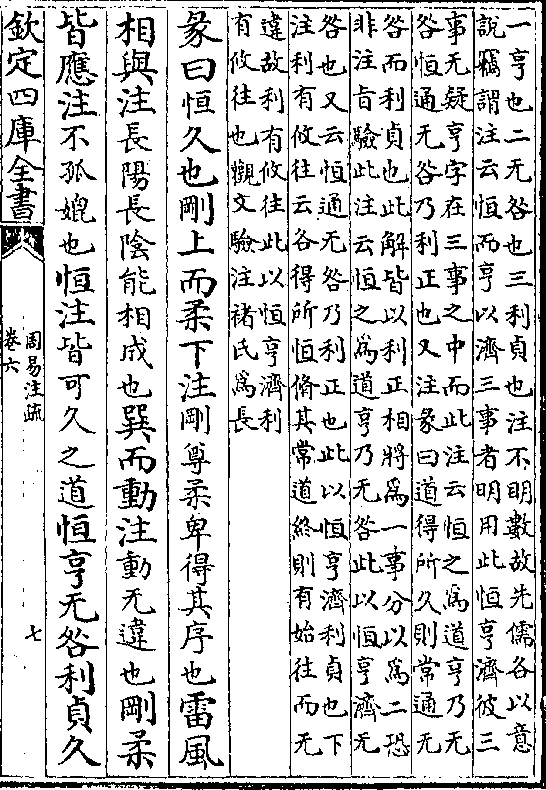 一亨也二无咎也三利貞也注不明數故先儒各以意
說竊謂注云恒而亨以濟三事者明用此恒亨濟彼三
事无疑亨字在三事之中而此注云恒之為道亨乃无
咎恒通无咎乃利正也又注彖曰道得所久則常通无
咎而利貞也此解皆以利正相將為一事分以為二恐
非注旨驗此注云恒之為道亨乃无咎此以恒亨濟无
咎也又云恒通无咎乃利正也此以恒亨濟利貞也下
注利有攸往云各得所恒脩其常道終則有始往而无
違故利有攸往此以恒亨濟利
有攸往也觀文驗注褚氏為長
彖曰恒久也剛上而柔下注剛尊柔卑得其序也雷風
相與注長陽長陰能相成也巽而動注動无違也剛柔
皆應注不孤媲也恒注皆可久之道恒亨无咎利貞久
欽定四庫全書
周易注疏
卷六
七